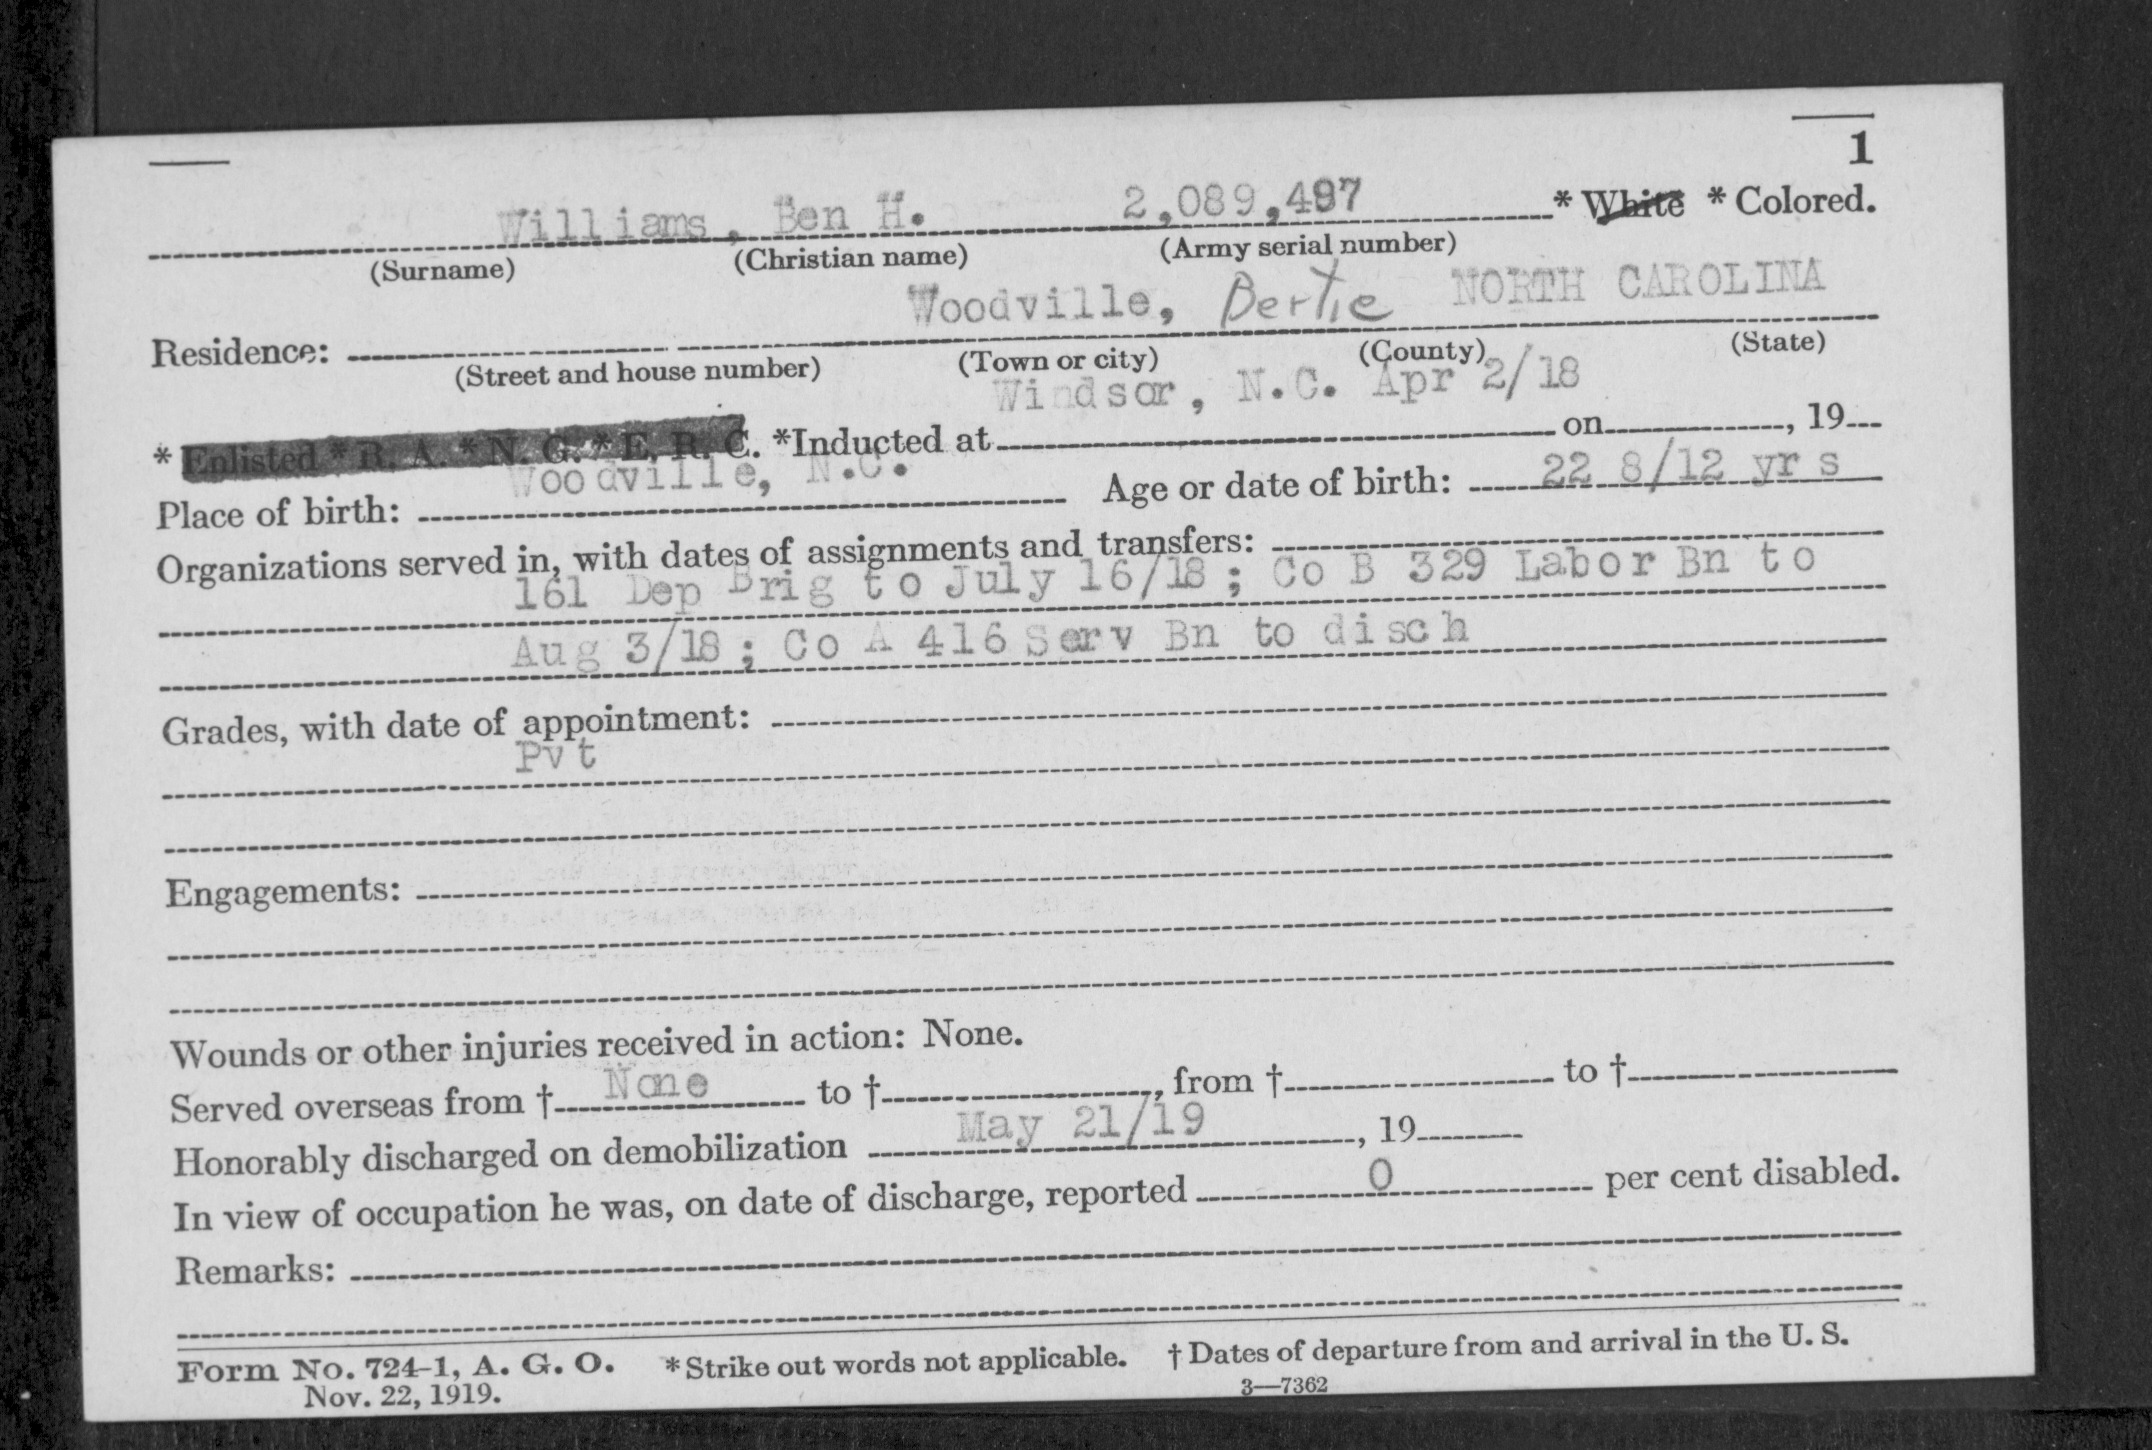 1
Williams, Ben H. 2,089,497 * White * Colored.
(Surname) (Christian name) (Army serial number)
Woodville, Bertie NORTH CAROLINA
Residence:
(Street and house number) (Town or city) (County) (State)
Windsor, N.C. Apr 2/18
* Enlisted * R. A. * N. G. * E. R. C. *Inducted at on , 19
Woodville, N.C. 22 8/12 yrs
Place of birth: Age or date of birth:
Organizations served in, with dates of assignments and transfers:
161 Dep Brig to July 16/18; Co B 329 Labor Bn to
Aug 3/18; Co A 416 Serv Bn to disch
Grades, with date of appointment:
Pvt
Engagements:
Wounds or other injuries received in action: None.
Served overseas from † None to † , from † to †
Honorably discharged on demobilization May 21/19 , 19
In view of occupation he was, on date of discharge, reported 0 per cent disabled.
Remarks:
Form No. 724-1, A. G. O. * Strike out words not applicable. † Dates of departure from and arrival in the U. S.
Nov. 22, 1919. 3—7362